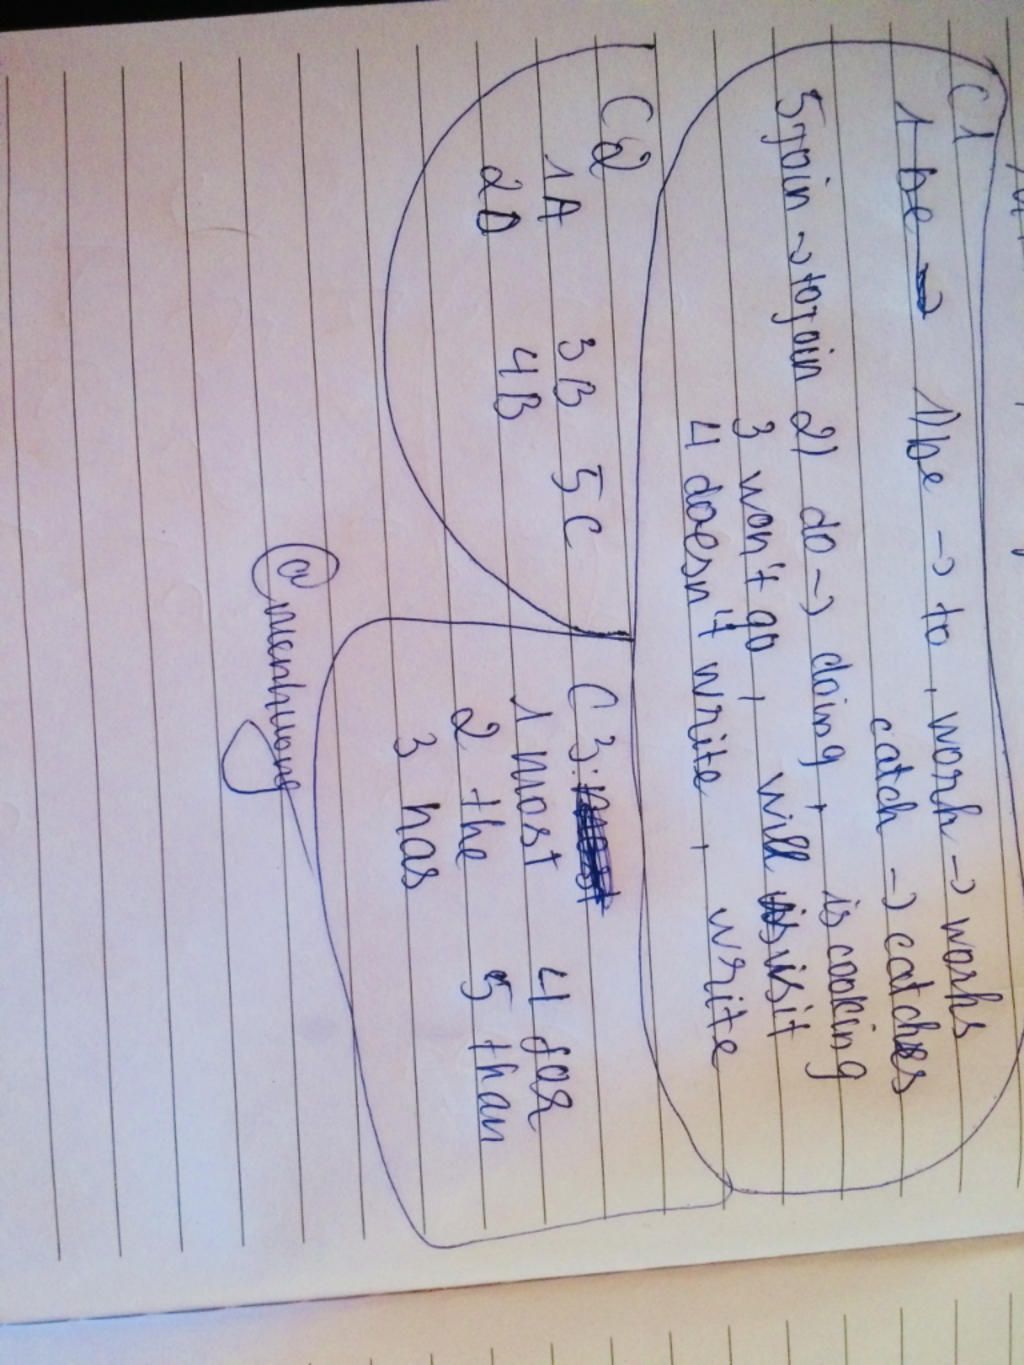 C1
1 be → 1) be → to, work → works
catch → catches
5 join → to join 2) do → doing, is cooking
3 won't go, will visit
4 doesn't write, write
C2
1A 3B 5C
2D 4B
C3:
1 most 4 for
2 the 5 than
3 has